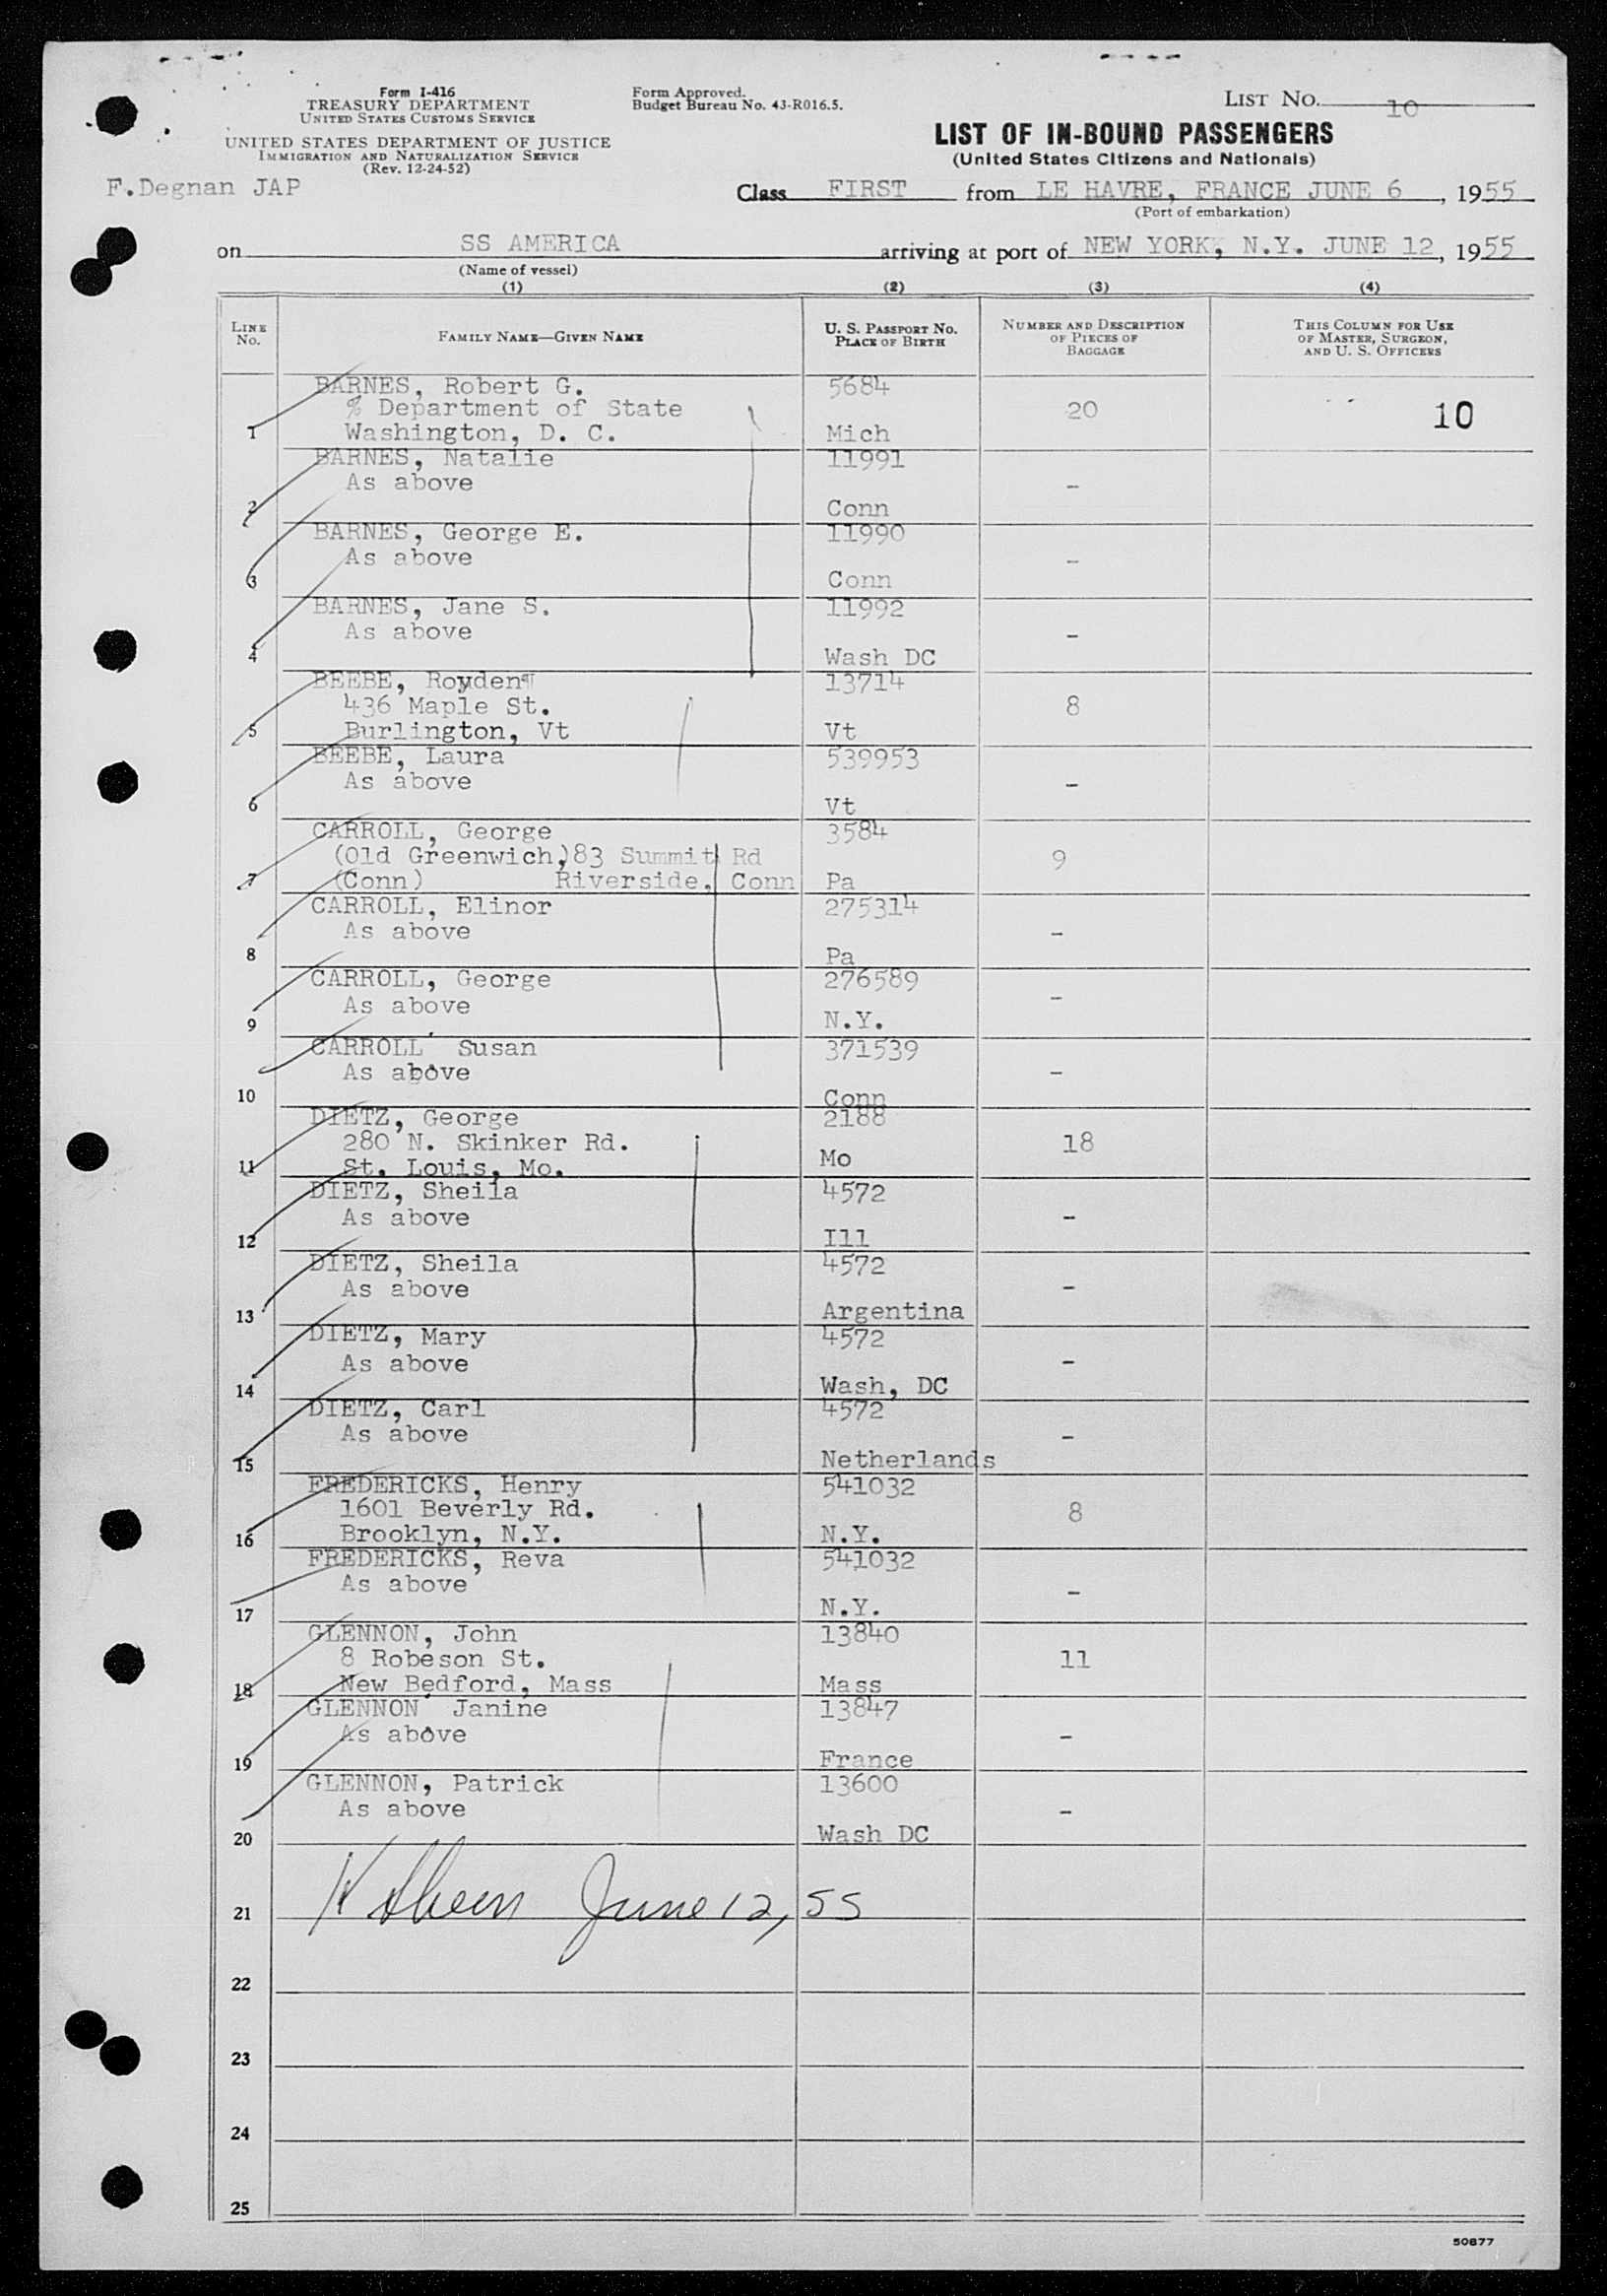 Form I-416
TREASURY DEPARTMENT
UNITED STATES CUSTOMS SERVICE
UNITED STATES DEPARTMENT OF JUSTICE
IMMIGRATION AND NATURALIZATION SERVICE
(Rev. 12-24-52)
Form Approved.
Budget Bureau No. 43-R016.5.
LIST NO. 10
LIST OF IN-BOUND PASSENGERS
(United States Citizens and Nationals)
F.Degnan JAP
Class FIRST from LE HAVRE, FRANCE JUNE 6, 1955
(Port of embarkation)
on SS AMERICA arriving at port of NEW YORK, N.Y. JUNE 12, 1955
(Name of vessel)
(1) (2) (3) (4)
LINE NO. FAMILY NAME—GIVEN NAME U. S. PASSPORT NO. PLACE OF BIRTH NUMBER AND DESCRIPTION OF PIECES OF BAGGAGE THIS COLUMN FOR USE OF MASTER, SURGEON, AND U. S. OFFICERS
BARNES, Robert G. 5684
% Department of State 20 10
1 Washington, D. C. Mich
BARNES, Natalie 11991
As above -
2 Conn
BARNES, George E. 11990
As above -
3 Conn
BARNES, Jane S. 11992
As above -
4 Wash DC
BEEBE, Royden 13714
436 Maple St. 8
5 Burlington, Vt Vt
BEEBE, Laura 539953
As above -
6 Vt
CARROLL, George 3584
(Old Greenwich,)83 Summit Rd 9
7 (Conn) Riverside, Conn Pa
CARROLL, Elinor 275314
As above -
8 Pa
CARROLL, George 276589
As above -
9 N.Y.
CARROLL' Susan 371539
As above -
10 Conn
DIETZ, George 2188
280 N. Skinker Rd. 18
11 St. Louis, Mo. Mo
DIETZ, Sheila 4572
As above -
12 Ill
DIETZ, Sheila 4572
As above -
13 Argentina
DIETZ, Mary 4572
As above -
14 Wash, DC
DIETZ, Carl 4572
As above -
15 Netherlands
FREDERICKS, Henry 541032
1601 Beverly Rd. 8
16 Brooklyn, N.Y. N.Y.
FREDERICKS, Reva 541032
As above -
17 N.Y.
GLENNON, John 13840
8 Robeson St. 11
18 New Bedford, Mass Mass
GLENNON' Janine 13847
As above -
19 France
GLENNON, Patrick 13600
As above -
20 Wash DC
21 June 12, 55
22
23
24
25
50877